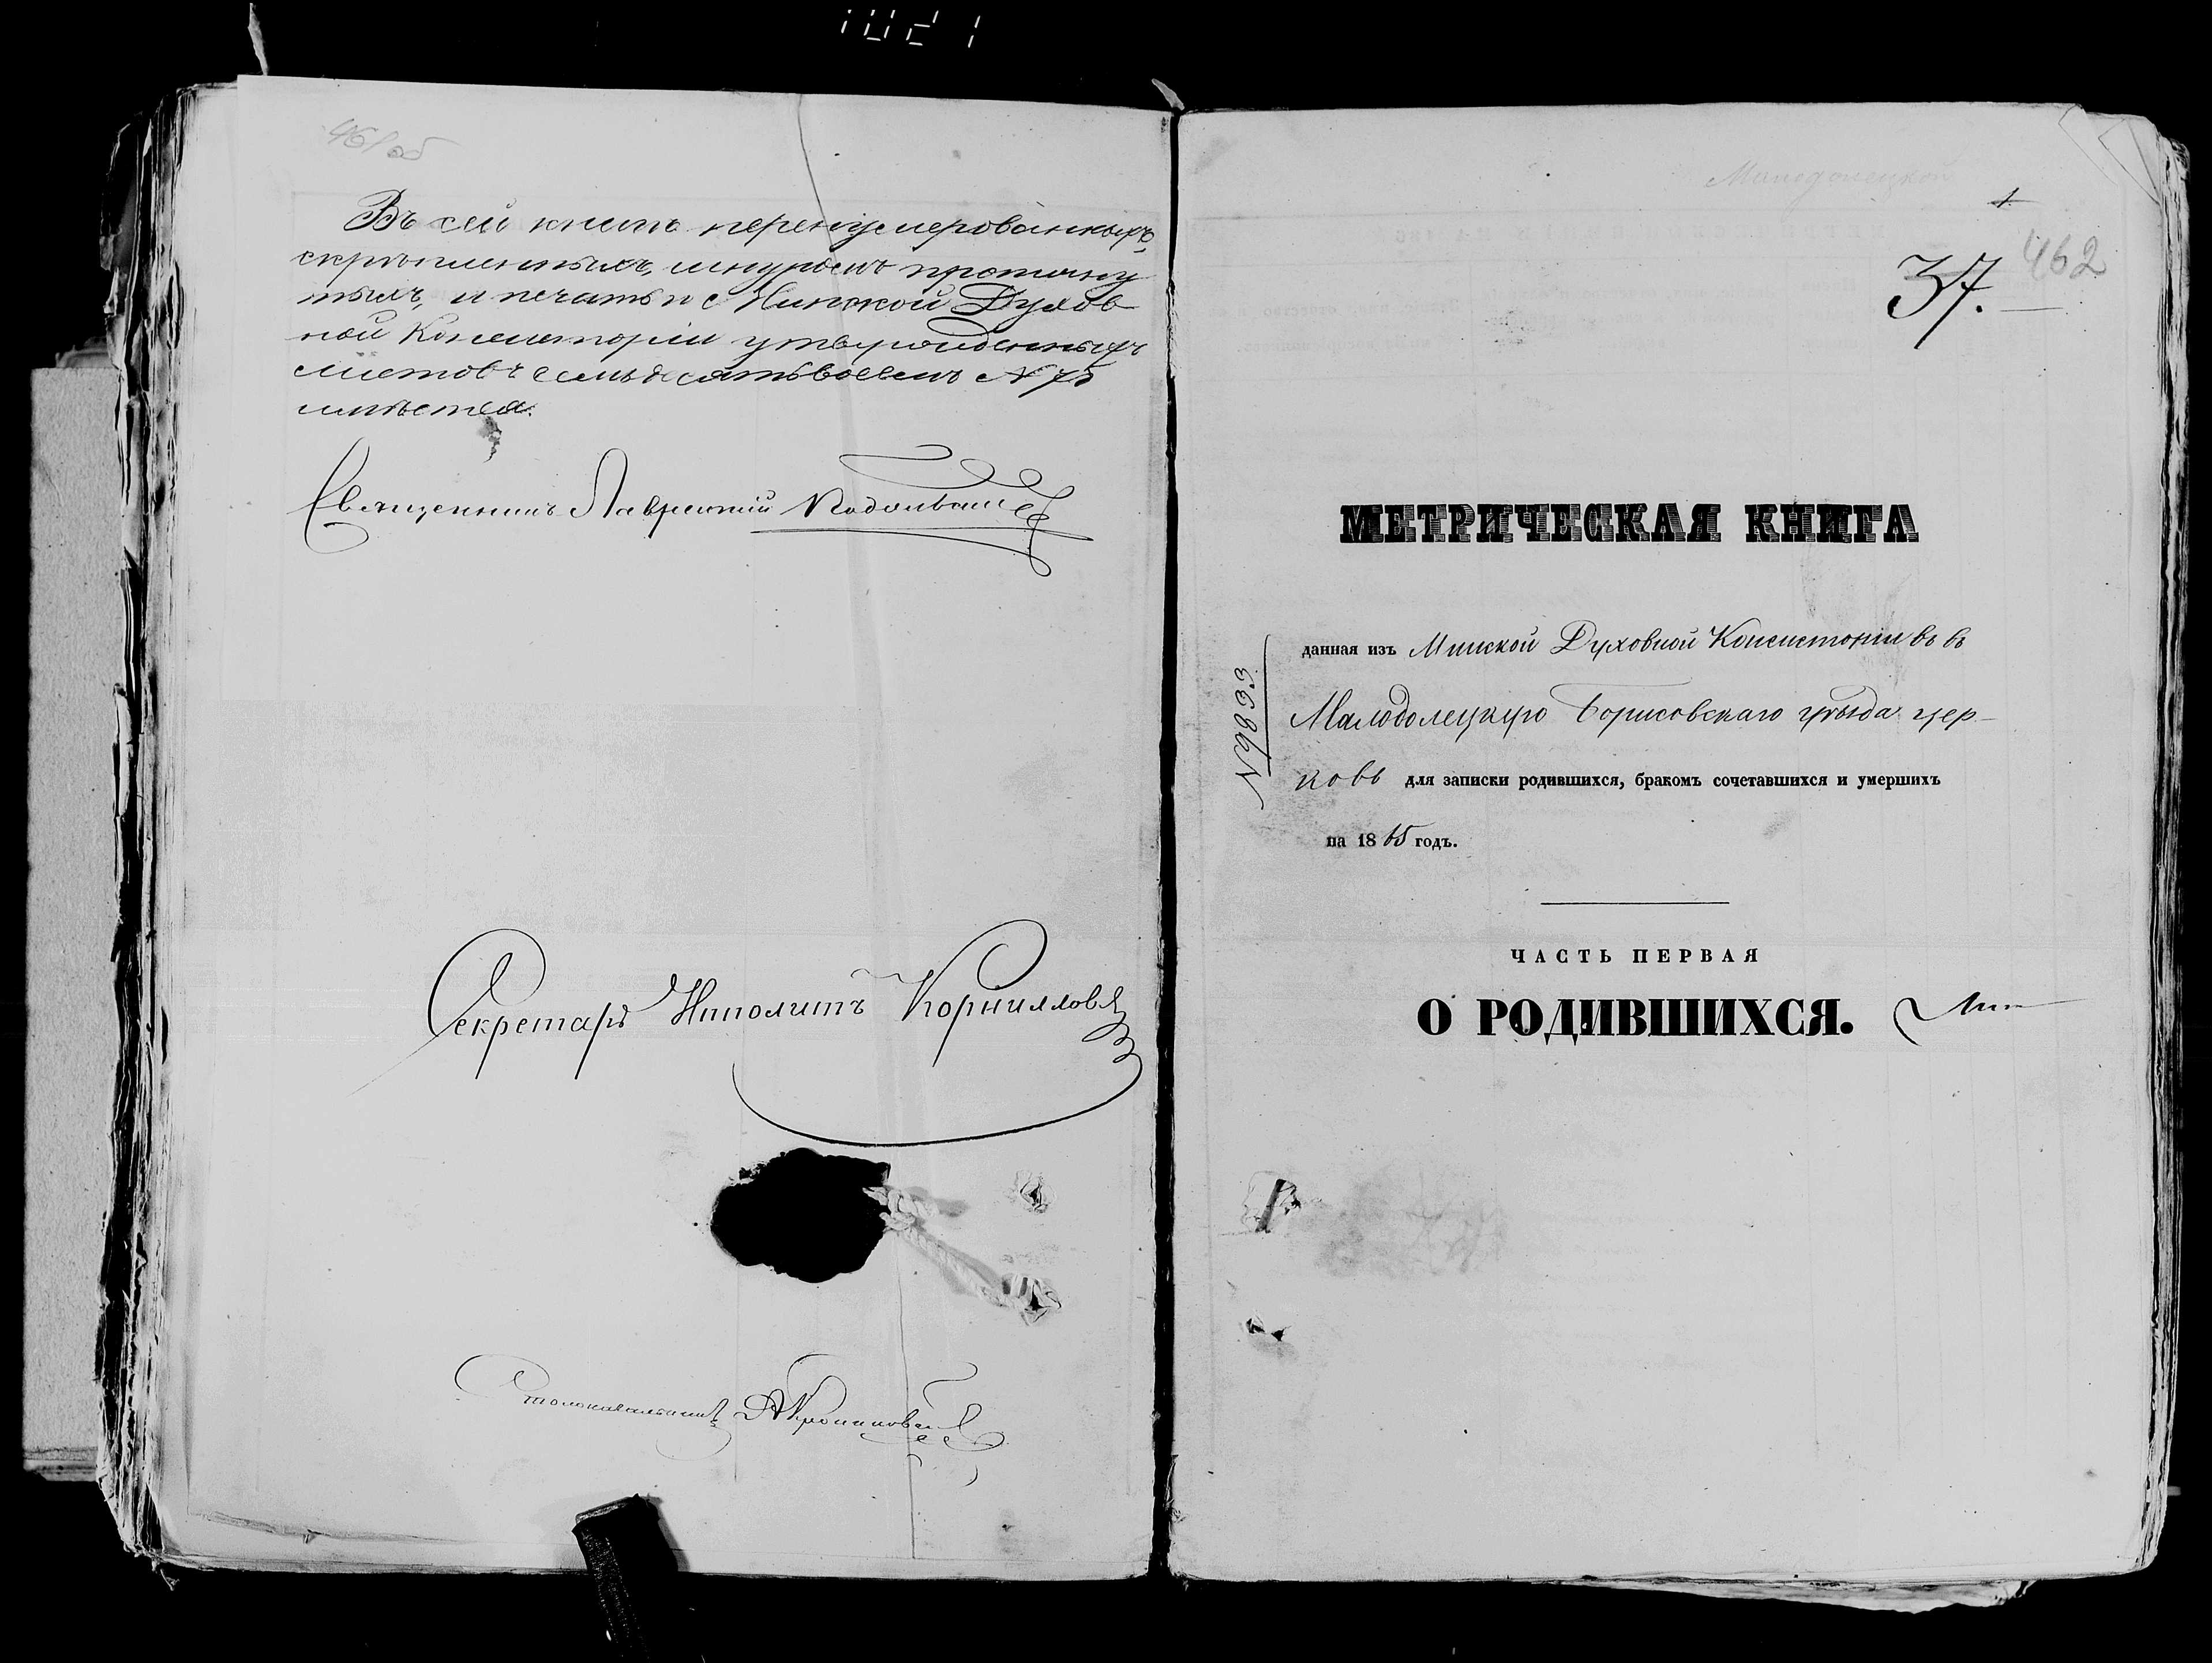 461 об
Въ сей книгѣ перенумерованныхъ,
скрѣпленныхъ, шнуромъ протяну
тыхъ, и печатью Минской Духов
ной Консисторіи утвержденныхъ
листовъ семьдесятъ восемь №
имѣется.
Священникъ Лаврентій
Секретарь Иполитъ Корнилловъ
Столоначальникъ
Малодолецкой
1
37.
462
МЕТРИЧЕСКАЯ КНИГА
№ 9833
данная изъ Минской Духовной Консисторіи въ
Малодолецкую Борисовскаго уѣзда цер-
ковь для записки родившихся, бракомъ сочетавшихся и умершихъ
на 1865 годъ.
ЧАСТЬ ПЕРВАЯ
О РОДИВШИХСЯ.